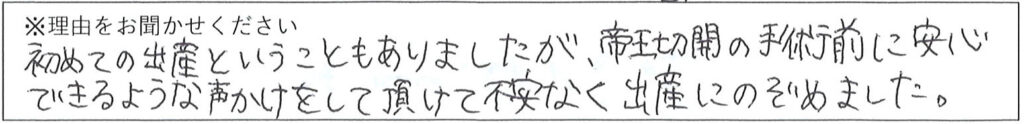 ※理由をお聞かせください
初めての出産ということもありましたが、帝王切開の手術前に安心
できるような声かけをして頂けて不安なく出産にのぞめました。